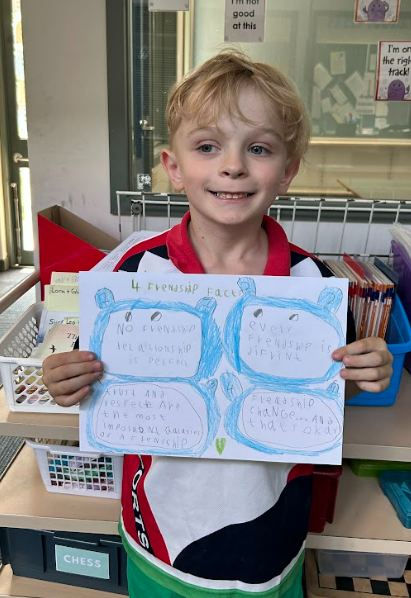 I'm not
good at
this
I'm on
the right
track!
4 Friendship Facts
No Friendship
relationship
is perfect
every
Friendship is
diffrint
trust and
respect Are
the most
of A friendship
Friendship
CHANGE... And
that's okay
SPORTS
CHESS